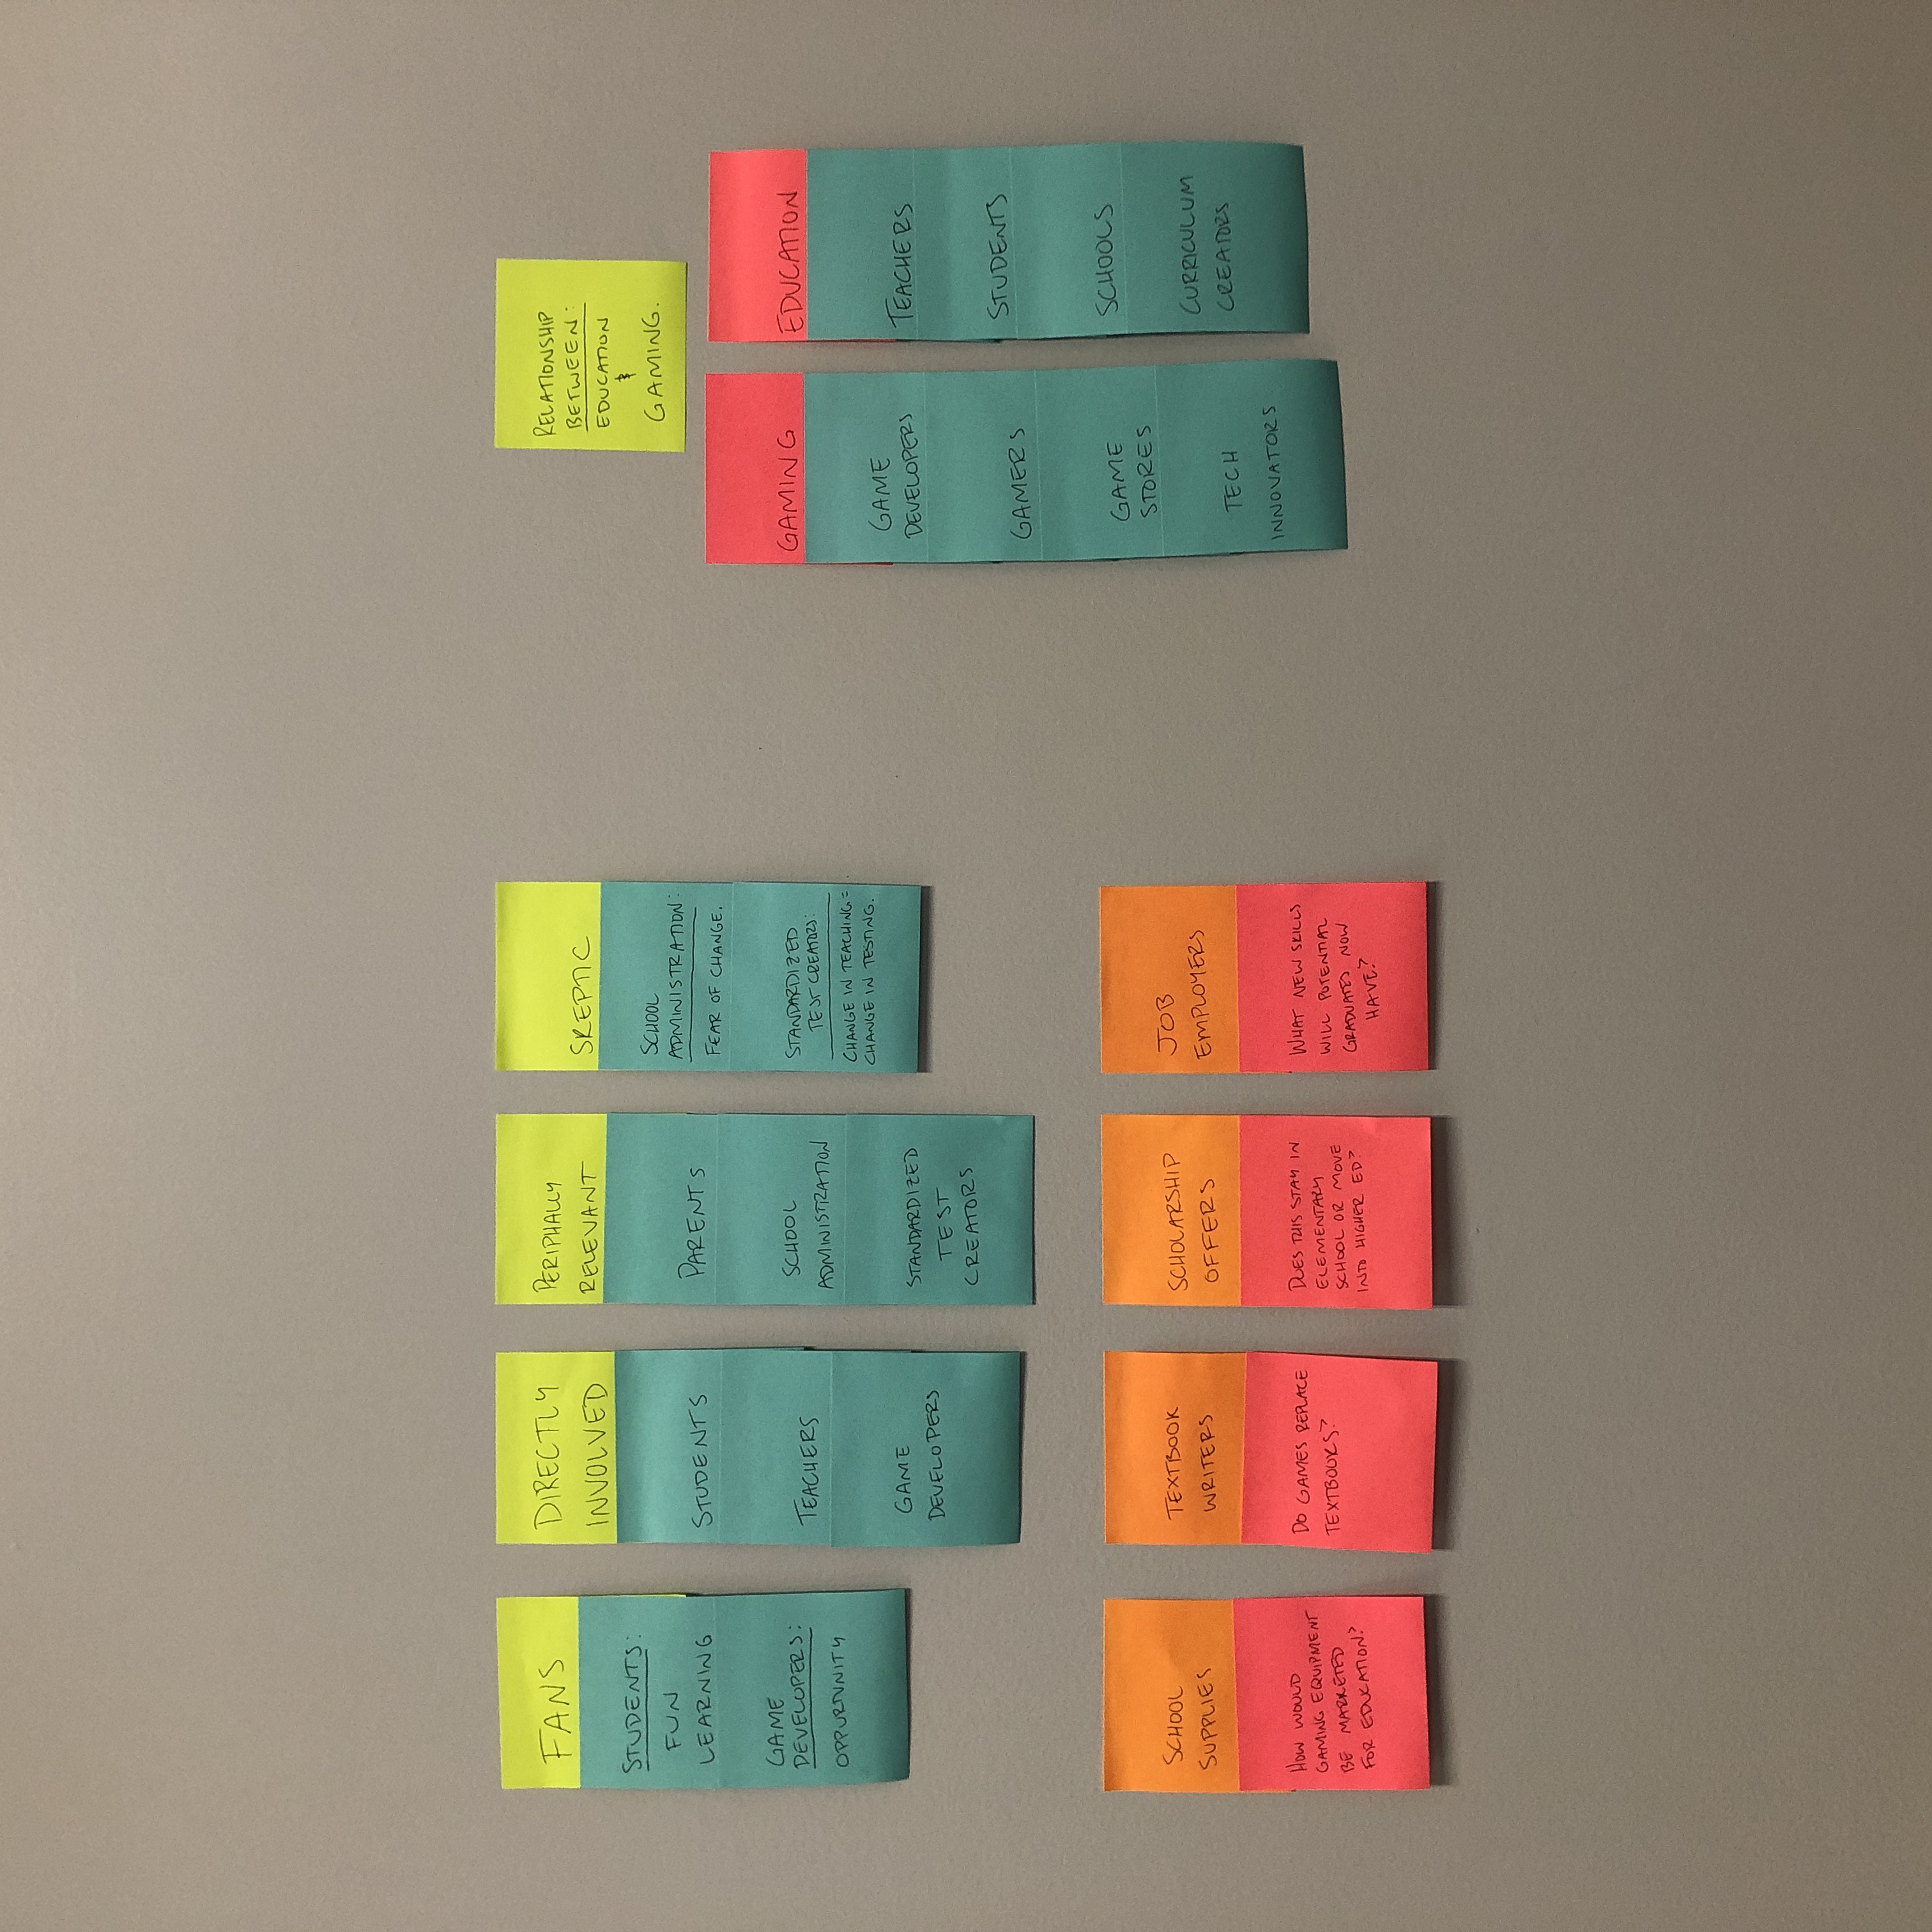 FANS
STUDENTS:
FUN
LEARNING
GAME
DEVELOPERS:
OPPURTUNITY
DIRECTLY
INVOLVED
STUDENTS
TEACHERS
GAME
DEVELOPERS
PERIPHALLY
RELEVANT
PARENTS
SCHOOL
ADMINISTRATION
STANDARDIZED
TEST
CREATORS
SKEPTIC
SCHOOL
ADMINISTRATION:
FEAR OF CHANGE.
STANDARDIZED
TEST CREATORS:
CHANGE IN TEACHING =
CHANGE IN TESTING.
SCHOOL
SUPPLIES
HOW WOULD
GAMING EQUIPMENT
BE MARKETED
FOR EDUCATION?
TEXTBOOK
WRITERS
DO GAMES REPLACE
TEXTBOOKS?
SCHOLARSHIP
OFFERS
DOES THIS STAY IN
ELEMENTARY
SCHOOL OR MOVE
INTO HIGHER ED?
JOB
EMPLOYERS
WHAT NEW SKILLS
WILL POTENTIAL
GRADUATES NOW
HAVE?
RELATIONSHIP
BETWEEN:
EDUCATION
&
GAMING.
GAMING
GAME
DEVELOPERS
GAMERS
GAME
STORES
TECH
INNOVATORS
EDUCATION
TEACHERS
STUDENTS
SCHOOLS
CURRICULUM
CREATORS